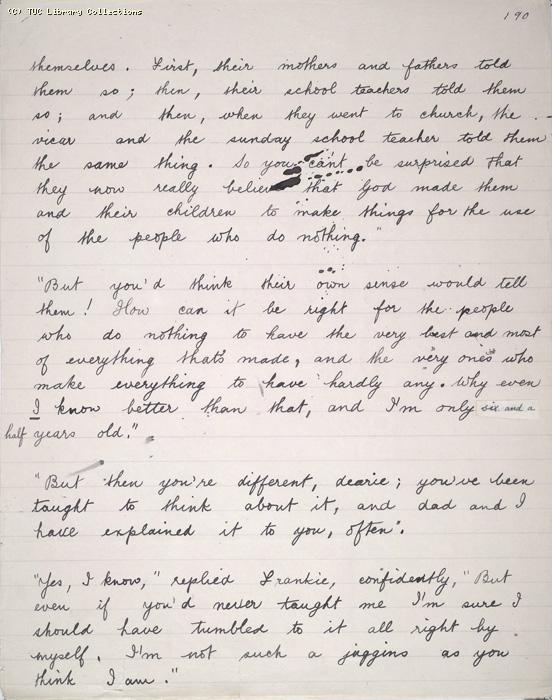 (C) TUC Library Collections
190
themselves. First, their mothers and fathers told
them so; then, their school teachers told them
so; and then, when they went to church, the
vicar and the sunday school teacher told them
the same thing. So you can't be surprised that
they now really believe that God made them
and their children to make things for the use
of the people who do nothing."
"But you'd think their own sense would tell
them! How can it be right for the people
who do nothing to have the very best and most
of everything that's made, and the very ones who
make everything to have hardly any. Why even
I know better than that, and I'm only six and a
half years old."
"But then you're different, dearie; you've been
taught to think about it, and dad and I
have explained it to you, often".
"Yes, I know," replied Frankie, confidently, "But
even if you'd never taught me I'm sure I
should have tumbled to it all right by
myself. I'm not such a juggins as you
think I am."